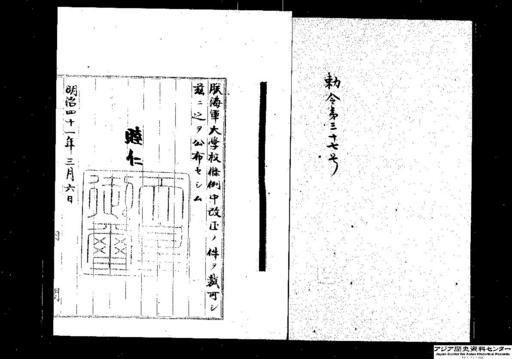 勅令第三十七号
朕海軍大学校條例中改正ノ件ヲ裁可シ
茲ニ之ヲ公布セシム
睦仁
天皇御璽
明治四十一年三月六日
アジア歴史資料センター
Japan Center for Asian Historical Records